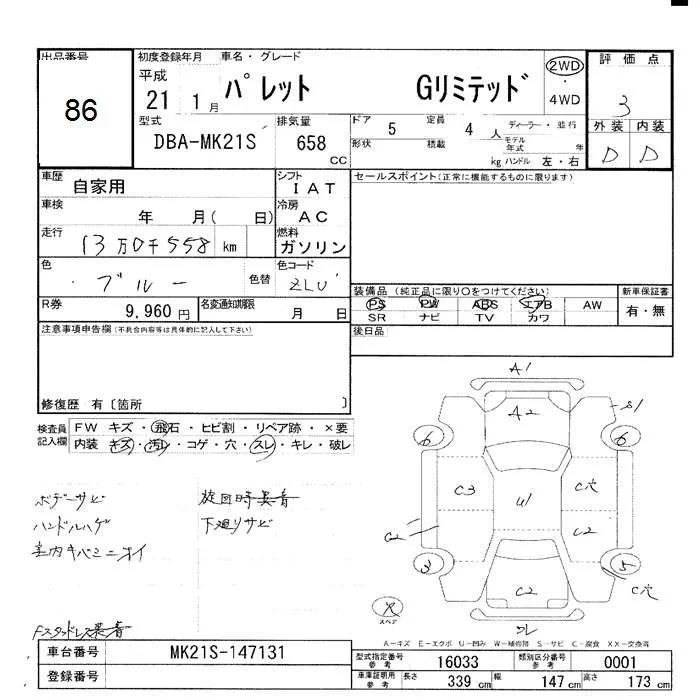 出品番号
86
初度登録年月
平成
21 1月
車名・グレード
パレット Gリミテッド
2WD
4WD
評価点
3
外装 内装
D D
型式
DBA-MK21S
排気量
658 CC
ドア 5
定員 4人
ディーラー・並行
形状
積載 kg
モデル年式 年
ハンドル 左・右
車歴
自家用
シフト
IAT
セールスポイント(正常に機能するものに限ります)
車検
年 月( 日)
冷房
AC
走行
13万0千558 km
燃料
ガソリン
色
ブルー
色替
色コード
ZLU
装備品 (純正品に限り○をつけてください)
新車保証書
PS PW ABS エアB AW
有・無
SR ナビ TV カワ
R券
9,960円
名変通知期限
月 日
後日品
注意事項申告欄(不具合内容等は具体的に記入して下さい)
修復歴 有〔箇所 〕
検査員
記入欄
FW キズ・飛石・ヒビ割・リペア跡・×要
内装 キズ・汚レ・コゲ・穴・スレ・キレ・破レ
A1
A2
S1
6
6
C3
U1
C穴
C2
C2
3
5
C2
C穴
スペア
ボデーサビ
ハンドルハゲ
室内キバミニオイ
旋回時異音
下廻リサビ
Fスタッドレス異音
A-キズ E-エクボ U-凹み W-補修跡 S-サビ C-腐食 XX-交換済
車台番号
MK21S-147131
登録番号
型式指定番号
参考
16033
類別区分番号
参考
0001
車庫証明用
参考
長さ 339 cm
幅 147 cm
高さ 173 cm